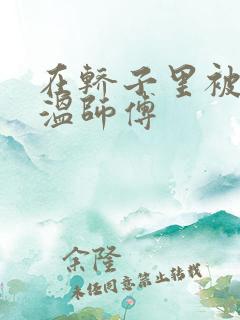 在轿子里被
温师傅
余隆
未经同意禁止转载